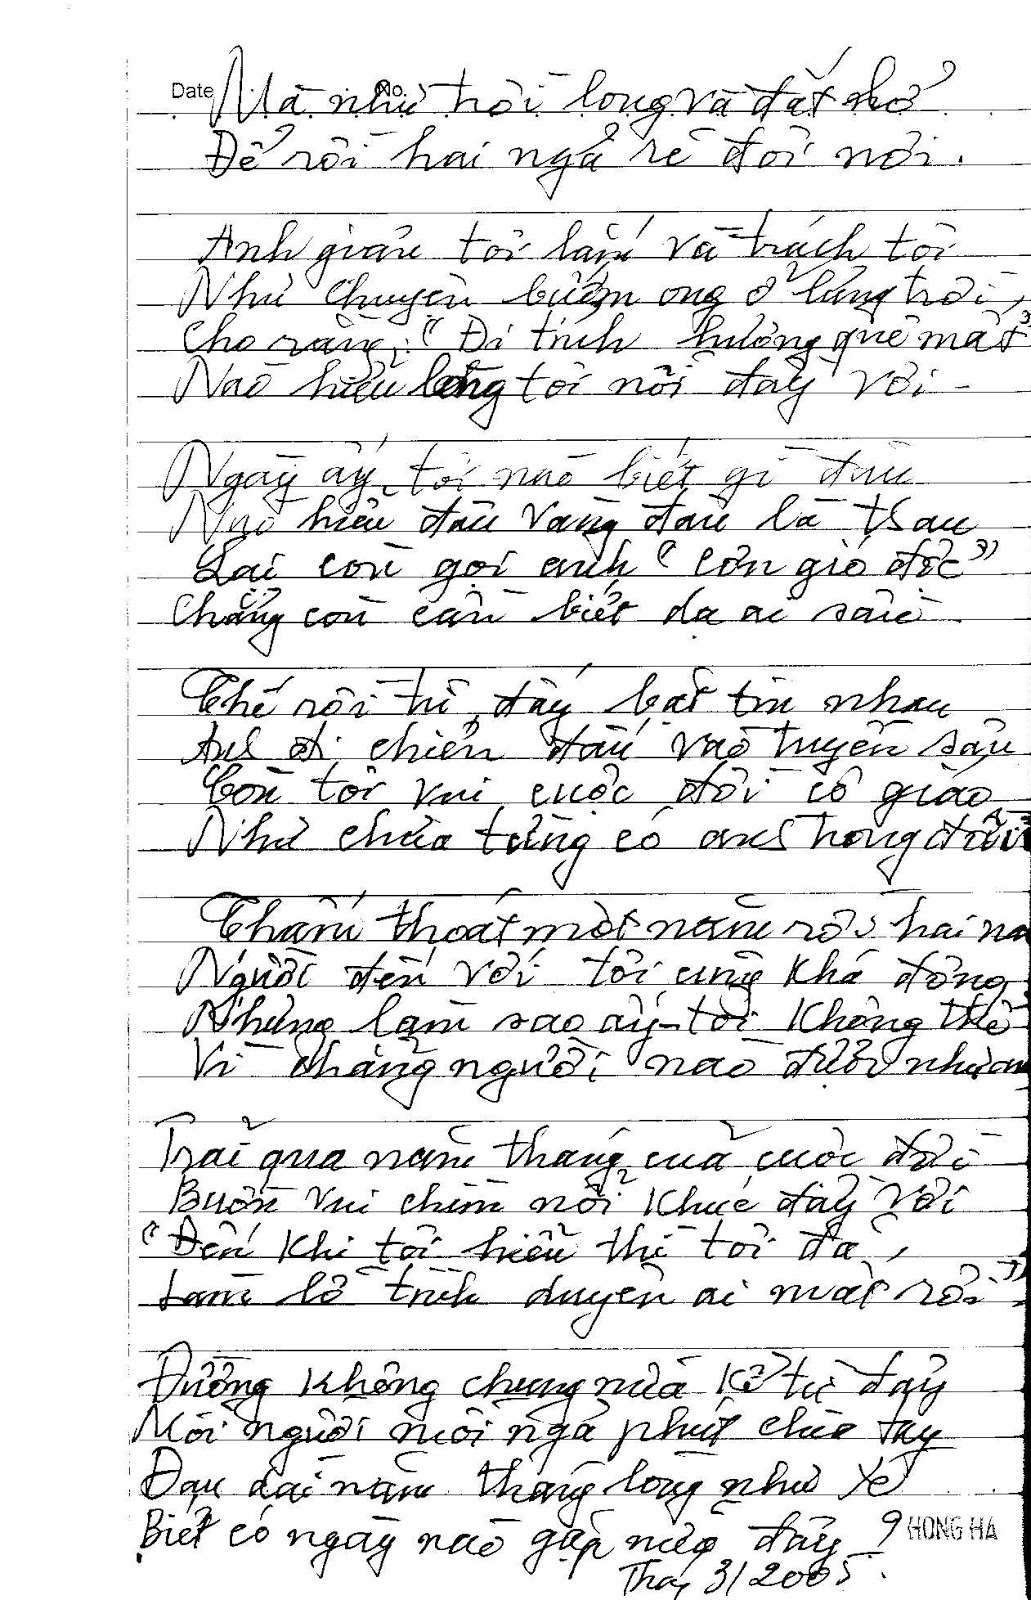 Date No.
Mà như trời long và đất nhở
Để rồi hai ngả rẽ đôi nơi.
Anh giận tôi lắm và trách tôi
Như chuyện bướm ong ở lưng trời,
Cho rằng: "Đi tính hướng quê mất"
Nào hiểu lòng tôi nỗi đầy vơi -
Ngày ấy, tôi nào biết gì đâu
Nào hiểu đâu vàng đâu là thau
Lại còn gọi anh "cơn gió độc"
Chẳng còn cần biết dạ ai sầu
Thế rồi từ đấy bặt tin nhau
Anh đi chiến đấu vào tuyến sâu
Còn tôi vui cuộc đời cô giáo
Như chưa từng có anh trong đời
Thấm thoát một năm rồi hai nă
Người đến với tôi cũng khá đông
Nhưng làm sao ấy tôi không thể
Vì chẳng người nào được như anh
Trải qua năm tháng của cuộc đời
Buồn vui chìm nổi khúc đầy vơi
"Đến khi tôi hiểu thì tôi đã,
Làm lỡ tình duyên ai mất rồi"
Đường không chung nữa kể từ đây
Mỗi người mỗi ngả phút chia tay
Đau dài năm tháng lòng như xé
Biết có ngày nào gặp nữa đây ?
HONG HA
Thág 3/2005.